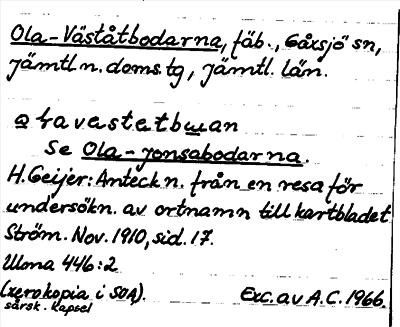 Ola-Väståtbodarna, fäb., Gåxsjö sn,
Jämtl n. doms. tg, Jämtl. län.
Se Ola-Jonsabodarna.
H. Geijer: Anteckn. från en resa för
undersökn. av ortnamn till kartbladet
Ström. Nov. 1910, sid. 17.
Ulma 446:2
(xerokopia i SOA).
särsk. kapsel
Exc. av A.C. 1966.